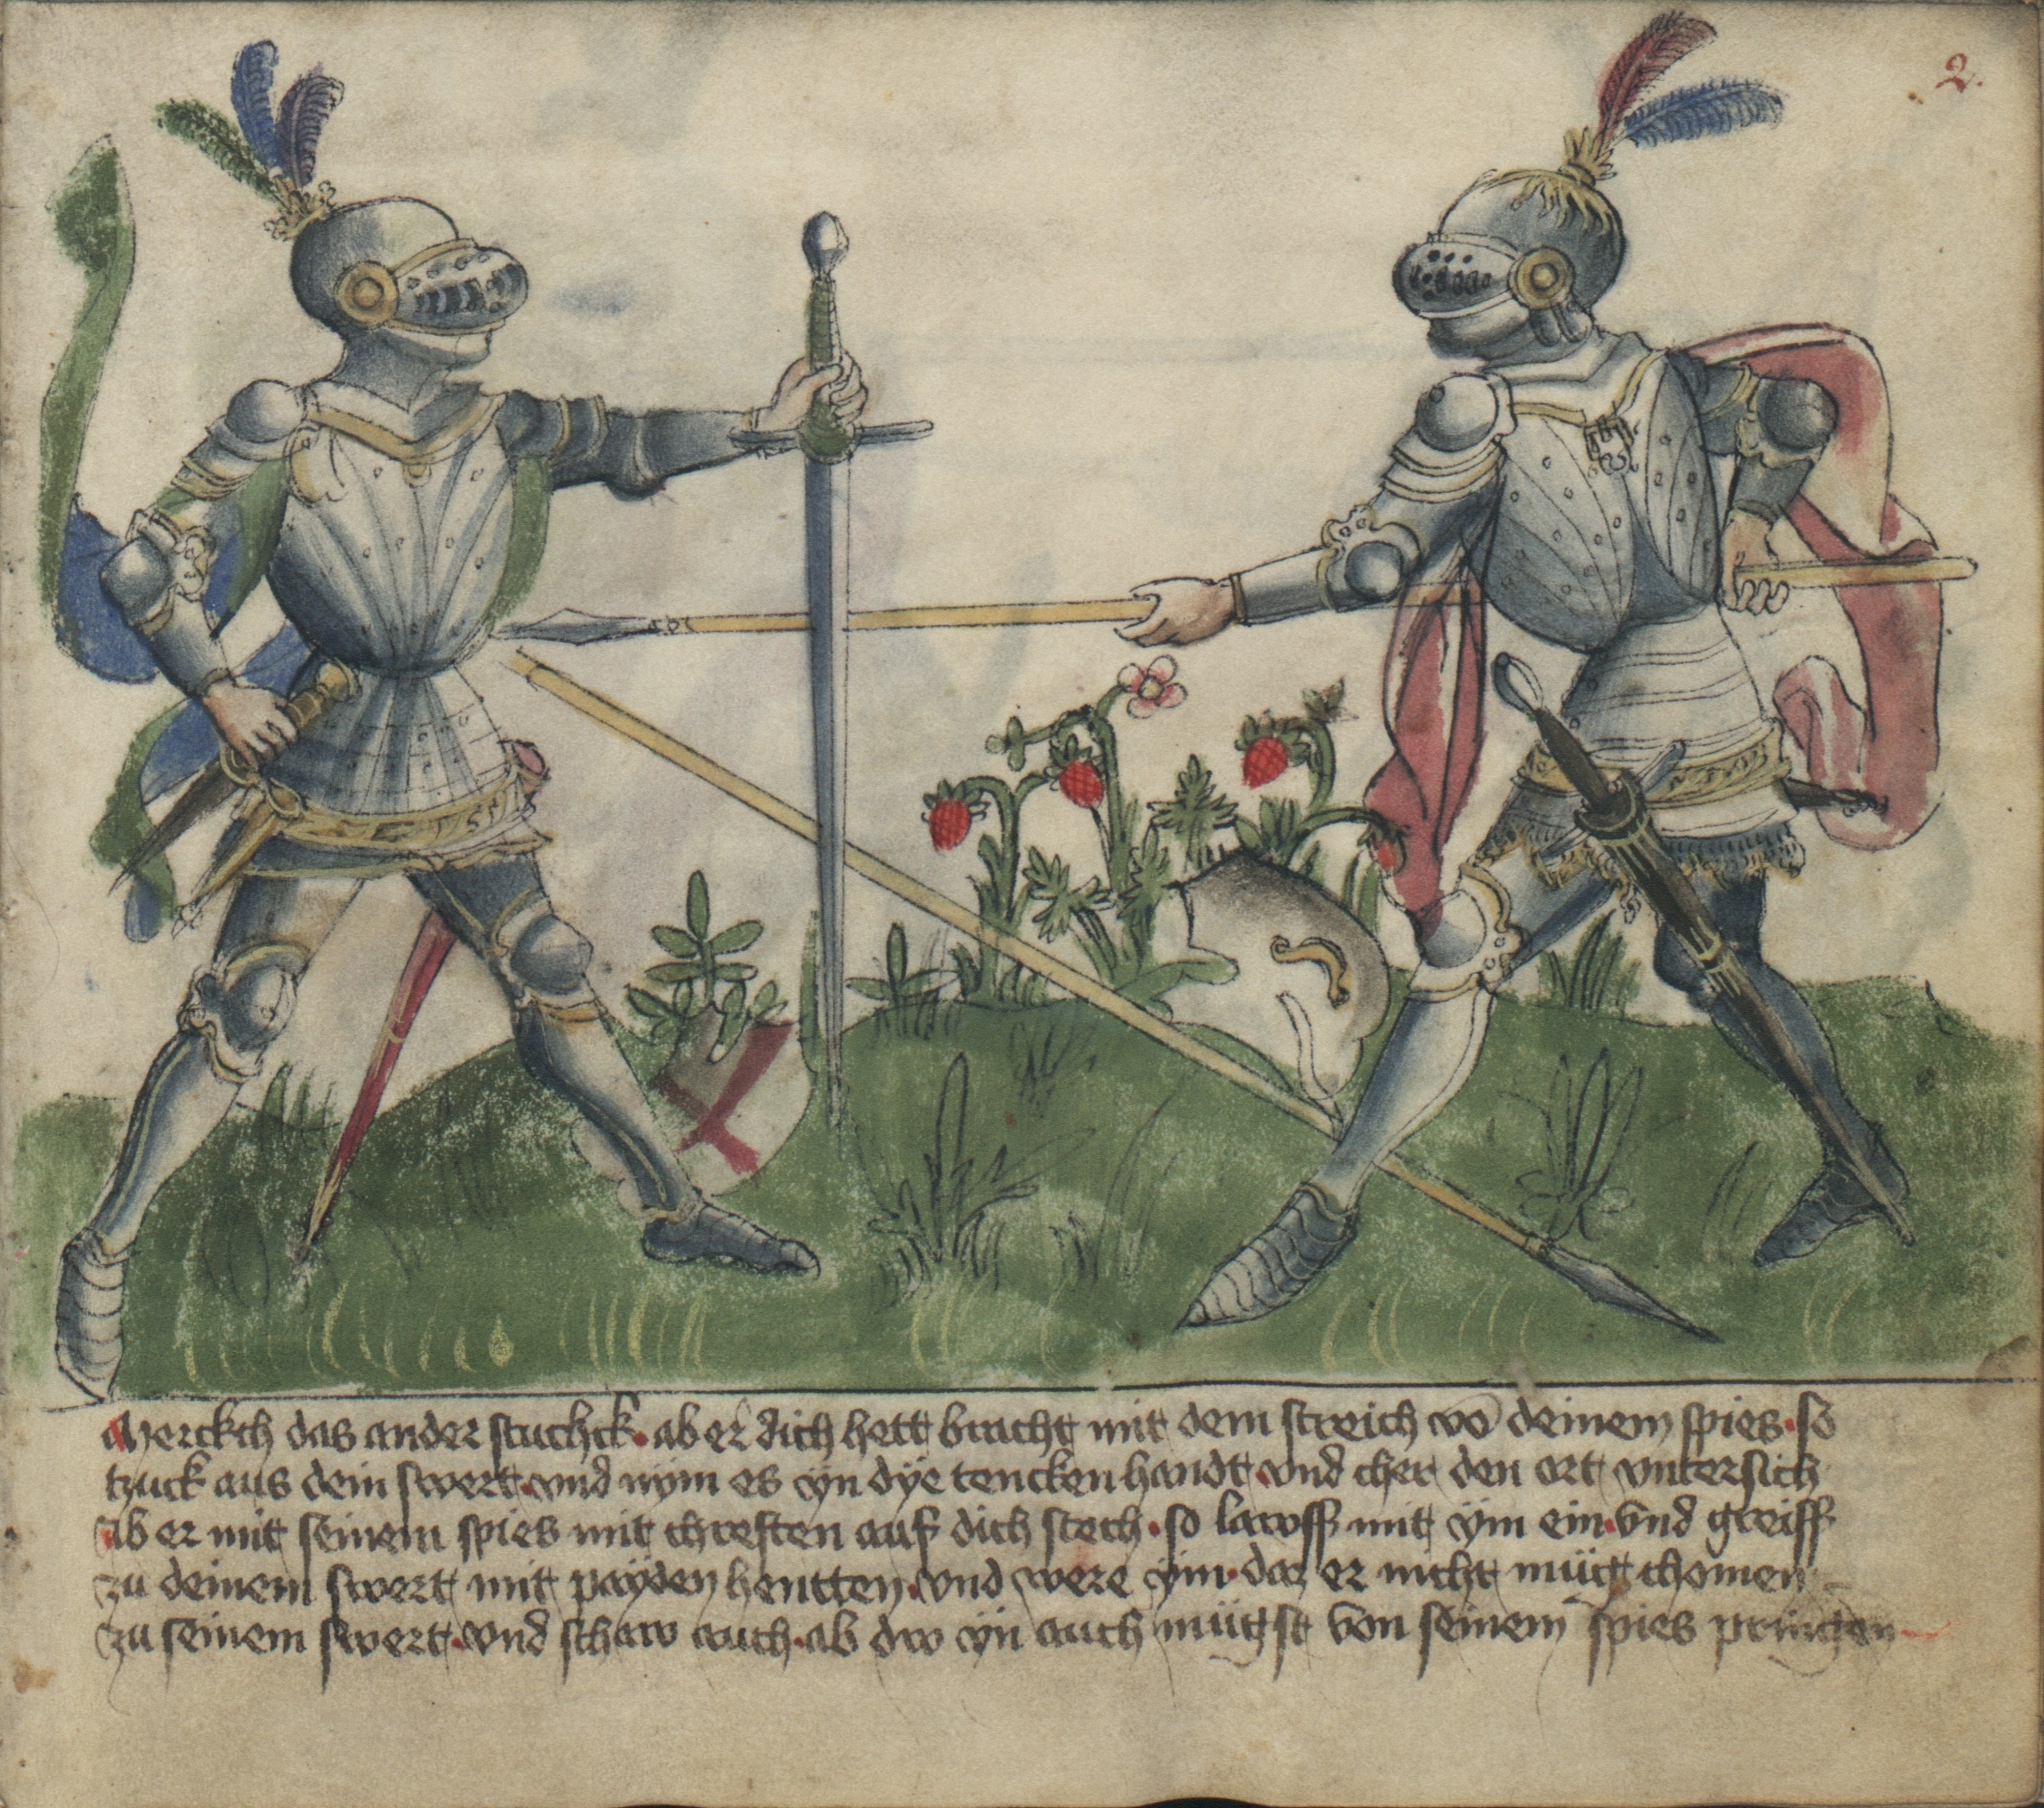 2.
Merckch das ander stuchck· ab er dich hett bracht mit dem streich vō deinem spies· so
tzuck aus dein swert· vnd nym es yn dye tencken handt· vnd cher den ort vntersich
ab er mit seinem spies mit chreften auf dich stech· so lawff mit ym ein· vnd greiff
zu deinem swert mit payden hentten· vnd were ym· daz er nicht müg chomen
zu seinem swert· vnd schaw auch· ab dw yn auch mügst von seinem spies pringen